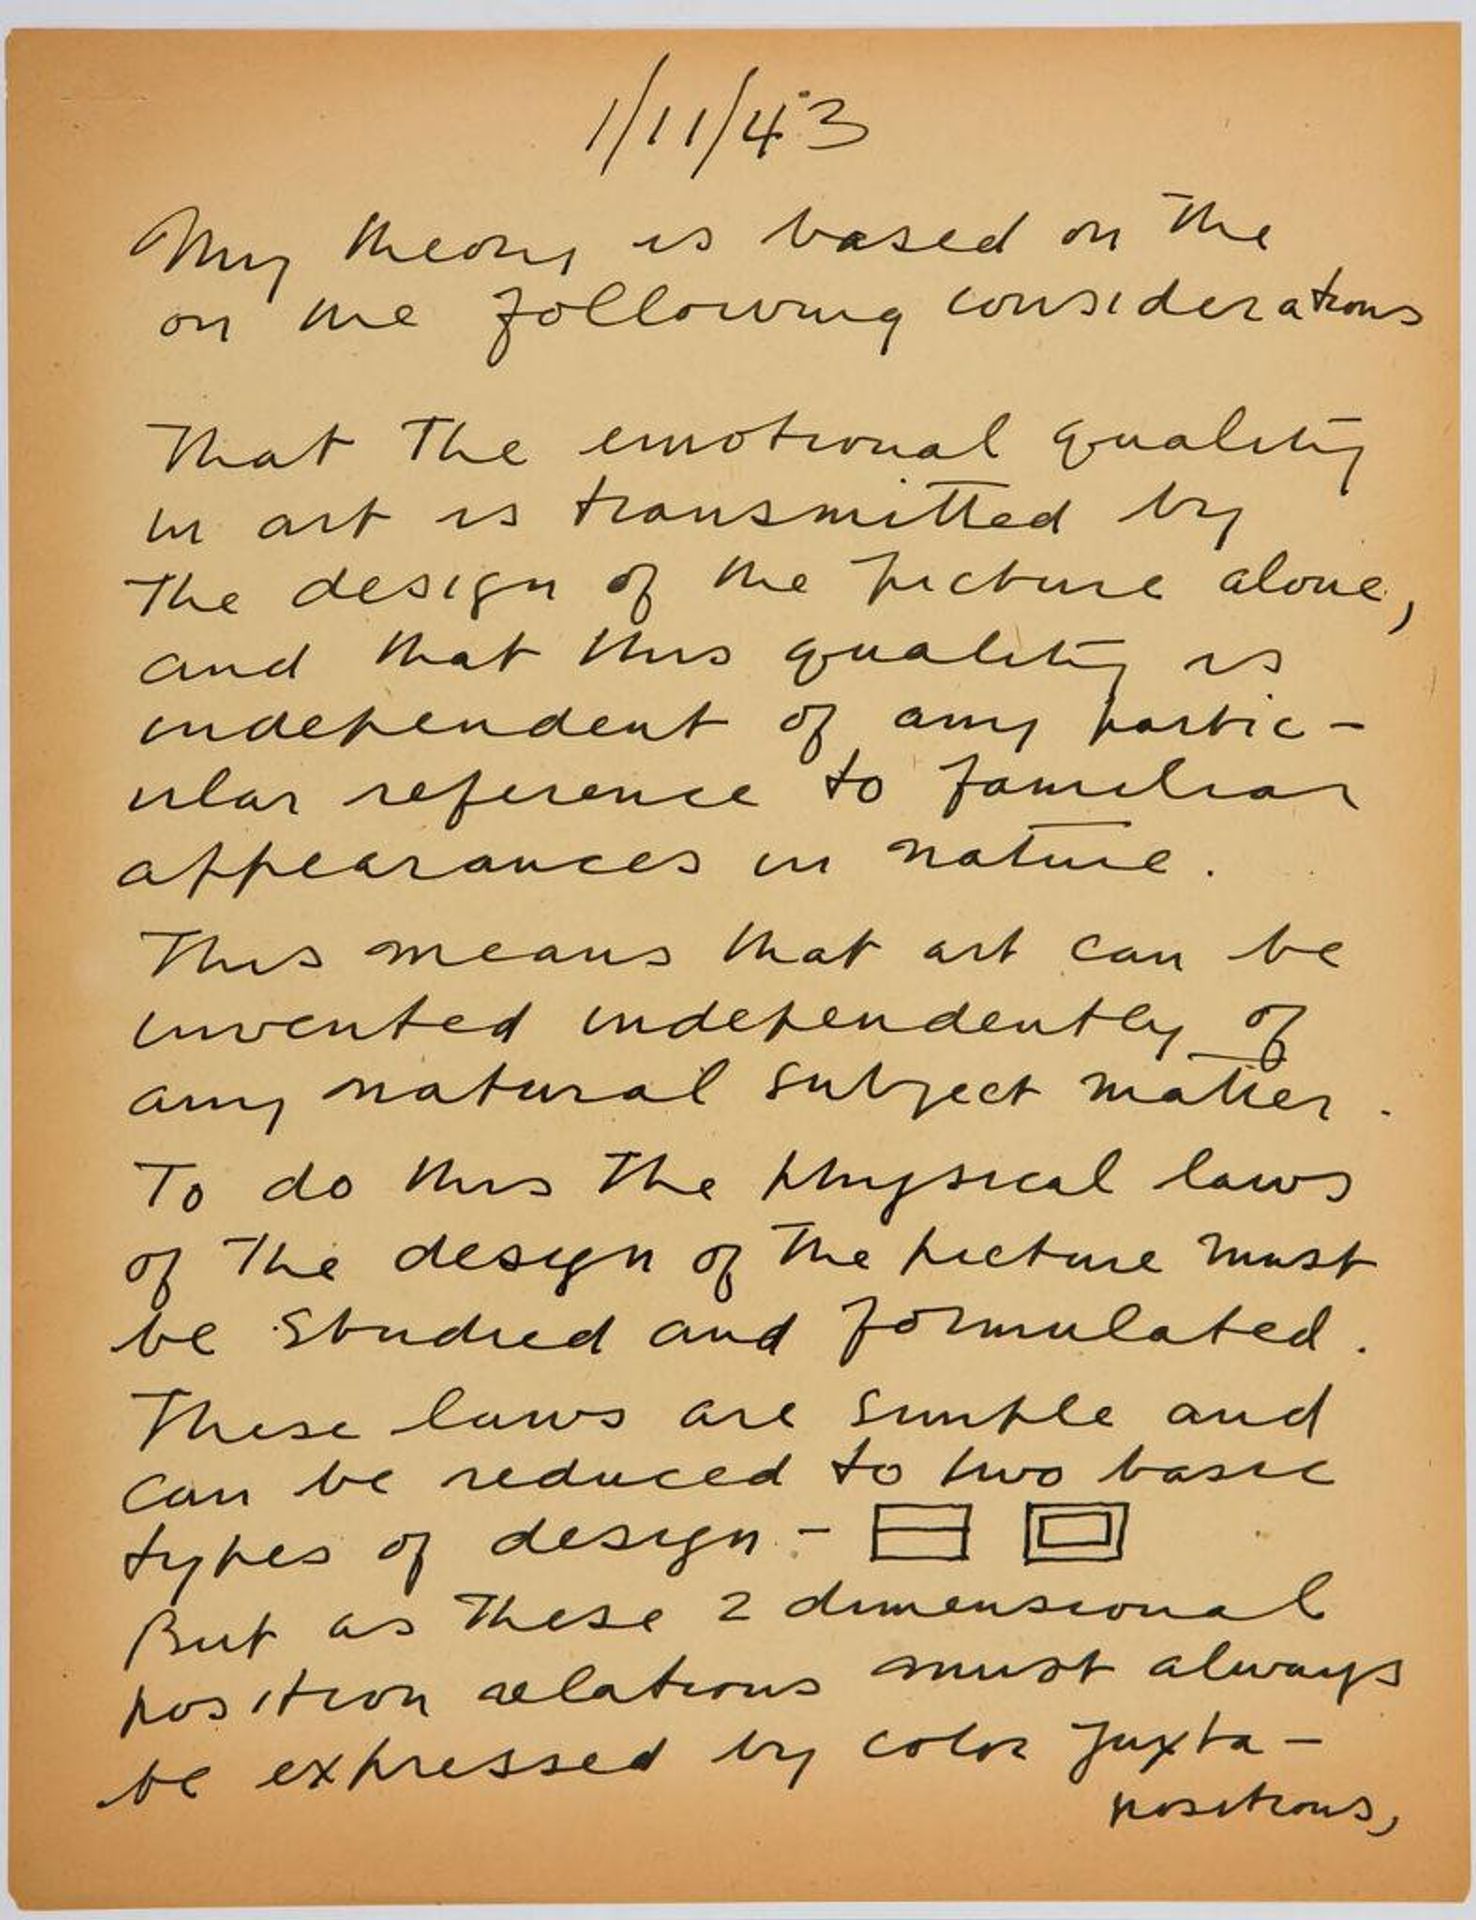 1/11/43
My theory is based on the
on the following considerations
That the emotional quality
in art is transmitted by
the design of the picture alone,
and that this quality is
independent of any partic-
ular reference to familiar
appearances in nature.
This means that art can be
invented independently of
any natural subject matter.
To do this the physical laws
of the design of the picture must
be studied and formulated.
These laws are simple and
can be reduced to two basic
types of design -
But as these 2 dimensional
position relations must always
be expressed by color juxta-
positions,